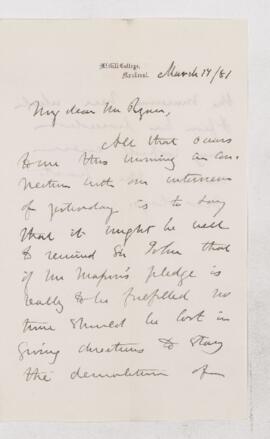 McGill College,
Montreal. March 17/81
My dear Mr
All that occurs
to me this morning in con-
nection with our interview
of yesterday is to say
that it might be well
to remind Sir John that
if Mr Mapson's pledge is
really to be fulfilled no
time should be lost in
giving directions to stay
the demolition of